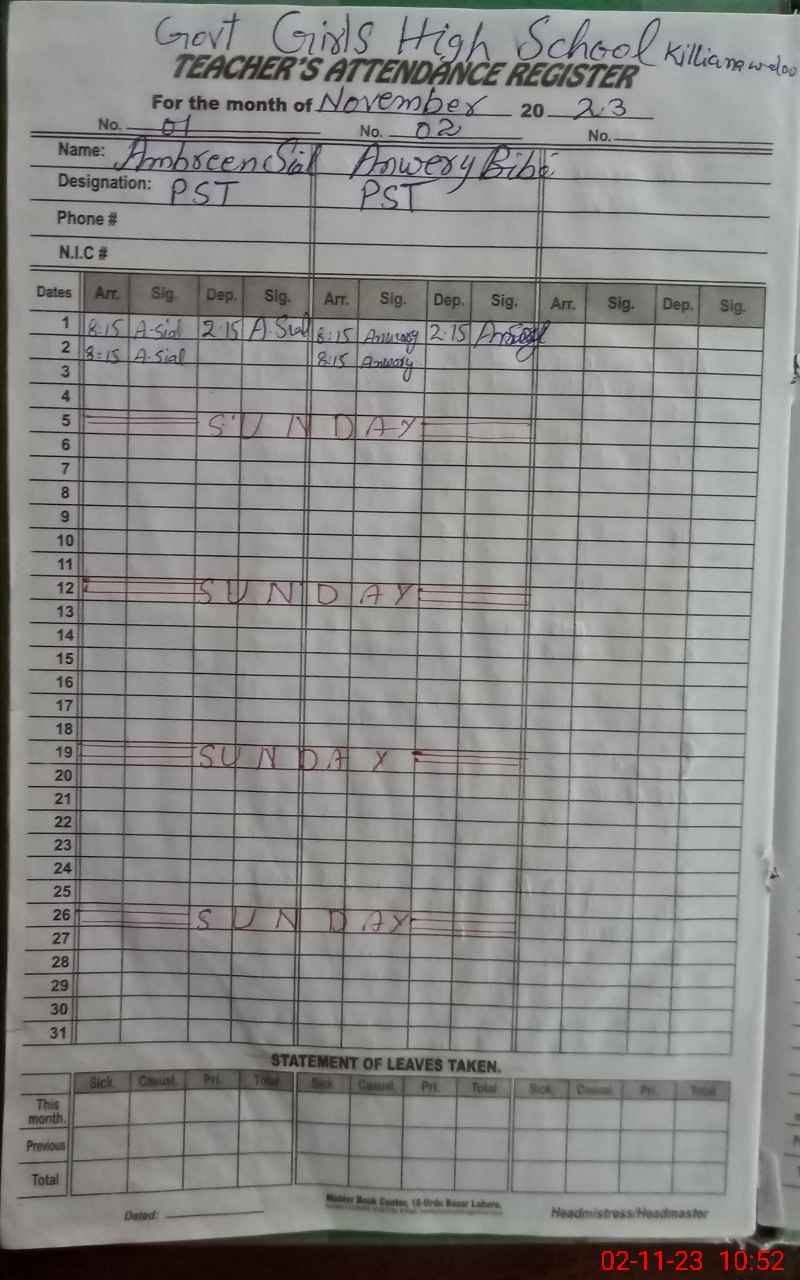 Govt Girls High School Killianewaloo
TEACHER'S ATTENDANCE REGISTER
For the month of November 2023
No. 01 No. 02 No.
Name: Ambreen Sial Anwery Bibi
Designation: PST PST
Phone #
N.I.C #
Dates Arr. Sig. Dep. Sig. Arr. Sig. Dep. Sig. Arr. Sig. Dep. Sig.
1 8:15 A-Sial 2:15 A.Sial 8:15 Anwery 2:15 Anwery
2 8:15 A.Sial 8:15 Anwery
3
4
5 SUNDAY
6
7
8
9
10
11
12 SUNDAY
13
14
15
16
17
18
19 SUNDAY
20
21
22
23
24
25
26 SUNDAY
27
28
29
30
31
STATEMENT OF LEAVES TAKEN.
Sick. Casual. Pri. Total Sick Casual. Pri. Total Sick. Casual. Pri. Total
This month.
Previous
Total
Master Book Center, 18-Urdu Bazar Lahore.
Dated: Headmistress/Headmaster
02-11-23 10:52